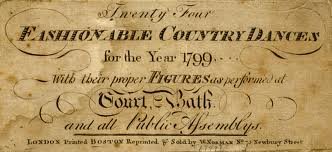 Twenty Four
FASHIONABLE COUNTRY DANCES
for the Year 1799.
With their proper FIGURES as performed at
Court, Bath
and all Public Assemblys.
LONDON Printed BOSTON Reprinted & Sold by W. NORMAN No. 75 Newbury Street